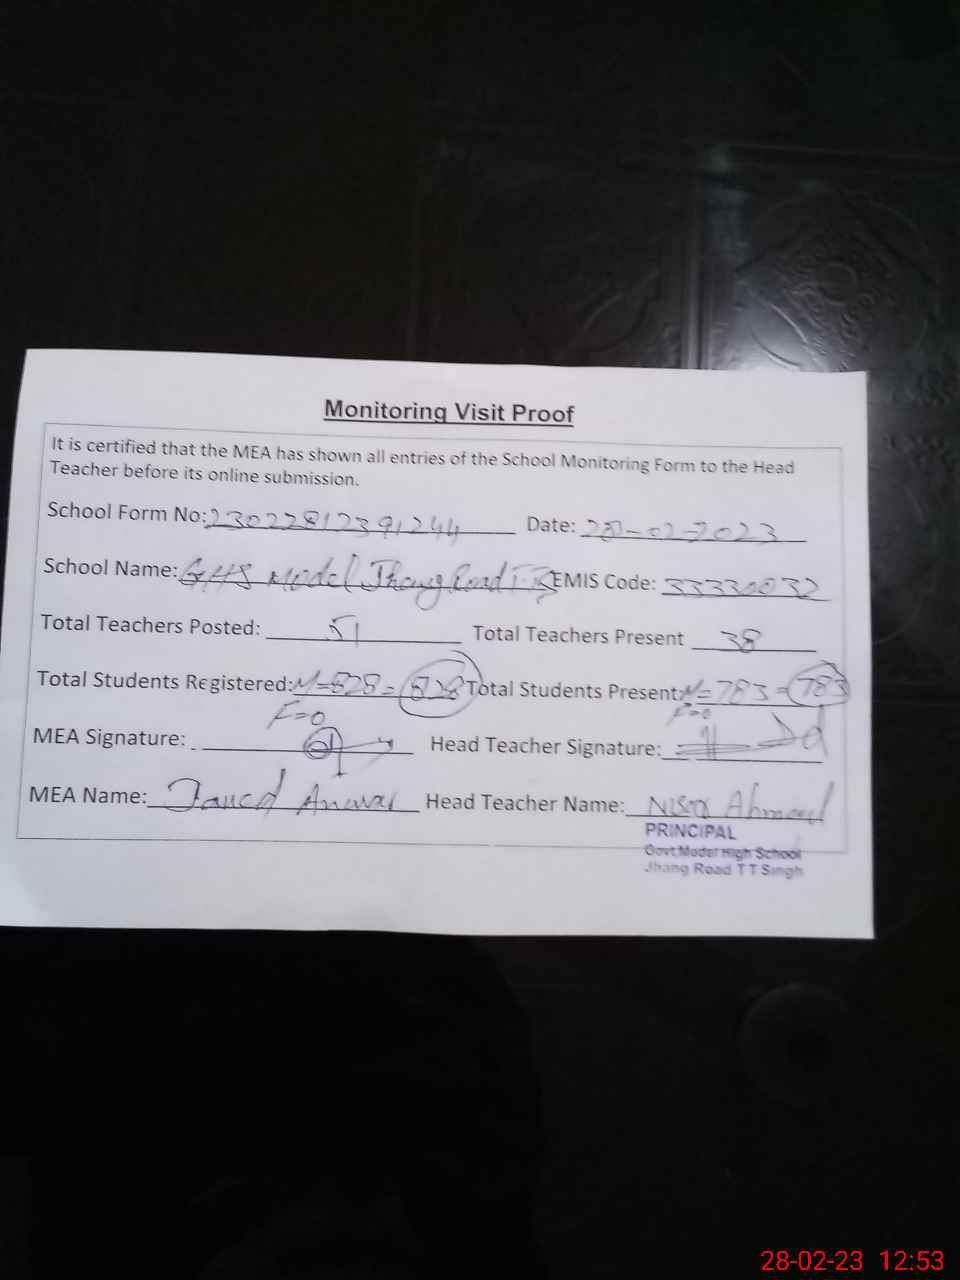 Monitoring Visit Proof
It is certified that the MEA has shown all entries of the School Monitoring Form to the Head
Teacher before its online submission.
School Form No: 23022812391244 Date: 28-02-2023
School Name: GHS Model Jhang Road T.T.S EMIS Code: 33330032
Total Teachers Posted: 51 Total Teachers Present 38
Total Students Registered: M=828=828 Total Students Present: M=783=783
F=0 F=0
MEA Signature: Head Teacher Signature:
MEA Name: Javed Anwar Head Teacher Name: Nisar Ahmad
PRINCIPAL
Govt.Model High School
Jhang Road T T Singh
28-02-23 12:53